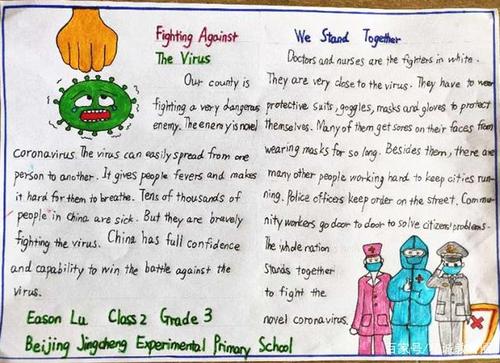 Fighting Against
The Virus
Our county is
fighting a very dangerous
enemy. The enemy is novel
coronavirus. The virus can easily spread from one
person to another. It gives people fevers and makes
it hard for them to breathe. Tens of thousands of
people in China are sick. But they are bravely
fighting the virus. China has full confidence
and capability to win the battle against the
virus.
Eason Lu Class 2 Grade 3
Beijing Jingcheng Experimental Primary School
We Stand Together
Doctors and nurses are the fighters in white.
They are very close to the virus. They have to wear
protective suits, goggles, masks and gloves to protect
themselves. Many of them get sores on their faces from
wearing masks for so long. Besides them, there are
many other people working hard to keep cities run-
ning. Police officers keep order on the street. Commu-
nity workers go door to door to solve citizens' problems.
The whole nation
stands together
to fight the
novel coronavirus.
百家号